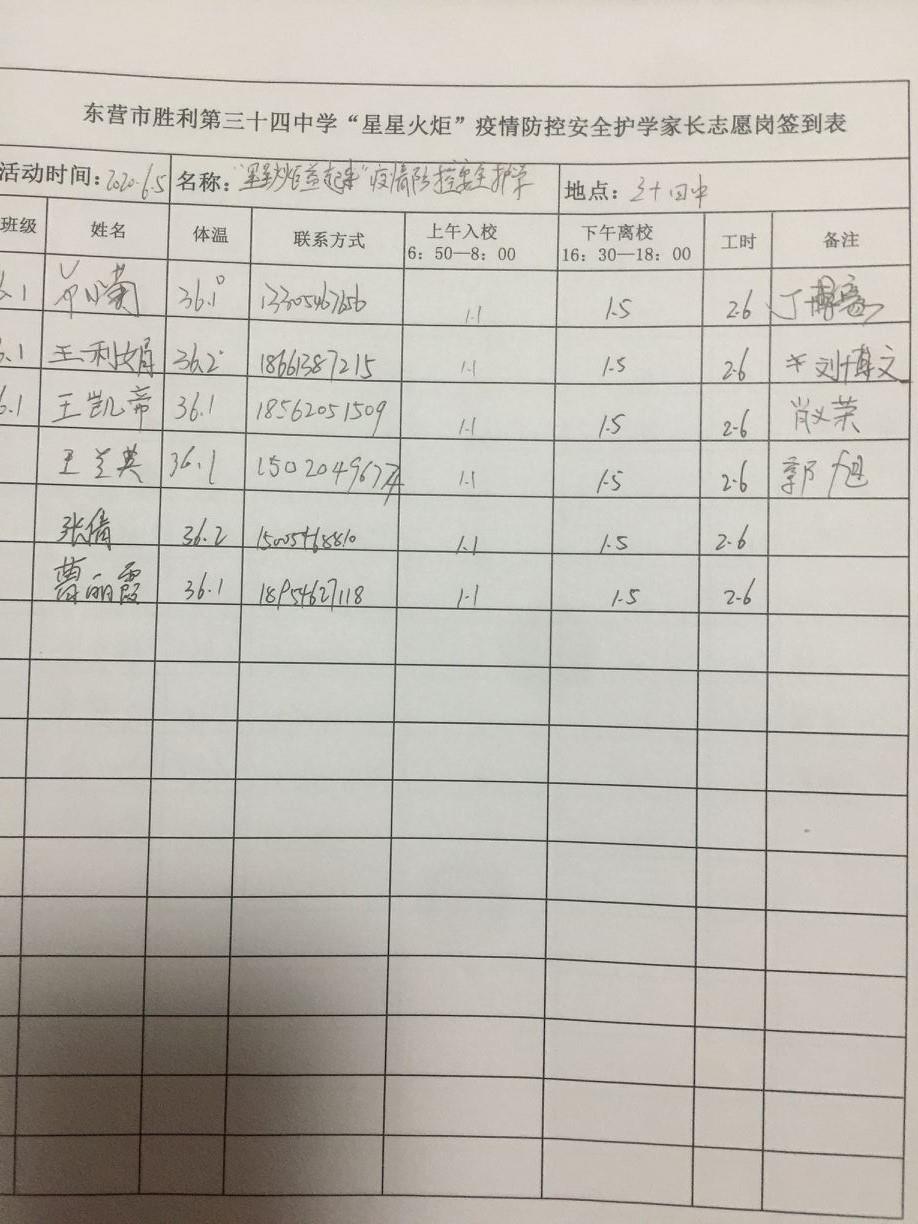 东营市胜利第三十四中学“星星火炬”疫情防控安全护学家长志愿岗签到表
活动时间：2020.6.5 名称：“星星火炬益起来”疫情防控安全护学 地点：三十四中
班级 姓名 体温 联系方式 上午入校 6：50—8：00 下午离校 16：30—18：00 工时 备注
6.1 36.1° 13305467656 1.1 1.5 2.6 丁博豪
6.1 王利娟 36.2° 18661387215 1.1 1.5 2.6 刘博文
6.1 王凯帝 36.1 18562051509 1.1 1.5 2.6 肖义荣
王兰英 36.1 15020496774 1.1 1.5 2.6 郭旭
张倩 36.2 15005468810 1.1 1.5 2.6
曹丽霞 36.1 18954627118 1.1 1.5 2.6